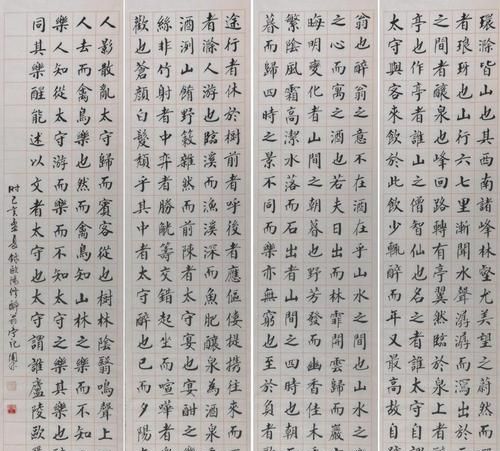 環滁皆山也其西南諸峰林壑尤美望之蔚然而
者琅玡也山行六七里漸聞水聲潺潺而瀉出於
之間者釀泉也峰回路轉有亭翼然臨於泉
亭也作亭者誰山之僧智仙也名之者誰太守自
太守與客來飲於此飲少輒醉而年又最高故自
翁也醉翁之意不在酒在乎山水之間也山水之
之心而寓之酒也若夫日出而林霏開雲歸而巖
晦明變化者山間之暮也野芳發而幽香佳木
繁陰風霜高潔水落而石出者山間之四時也朝
暮而歸四時之景不同而樂亦無窮也至於負者
途行者休於樹前者呼後者應傴僂提攜往來而
者滁人游也臨溪而漁溪深而魚肥釀泉為
酒洌山餚野蔌雜然而前陳者太守宴也宴酣之
絲非竹射者中弈者勝觥籌交錯起坐而喧嘩者
歡也蒼顏白髮頹乎其中者太守醉也已而夕陽
人影散亂太守歸而賓客從也樹林陰翳鳴聲上
人去而禽鳥樂也然而禽鳥知山林之樂而不知
樂人知從太守游而樂而不知太守之樂其樂也
同其樂醒能述以文者太守也太守謂誰廬陵歐
時己亥孟春錄歐陽修醉翁亭記